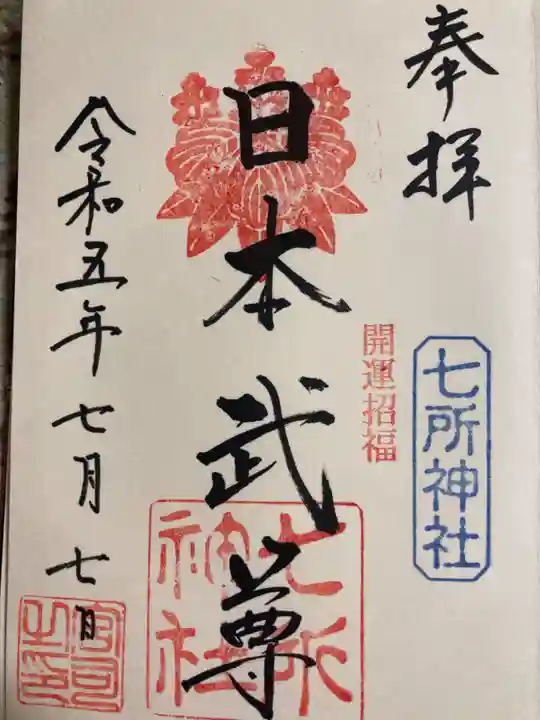 奉拝
七所神社
開運招福
日本武尊
七所神社
令和五年七月七日
宮司之印